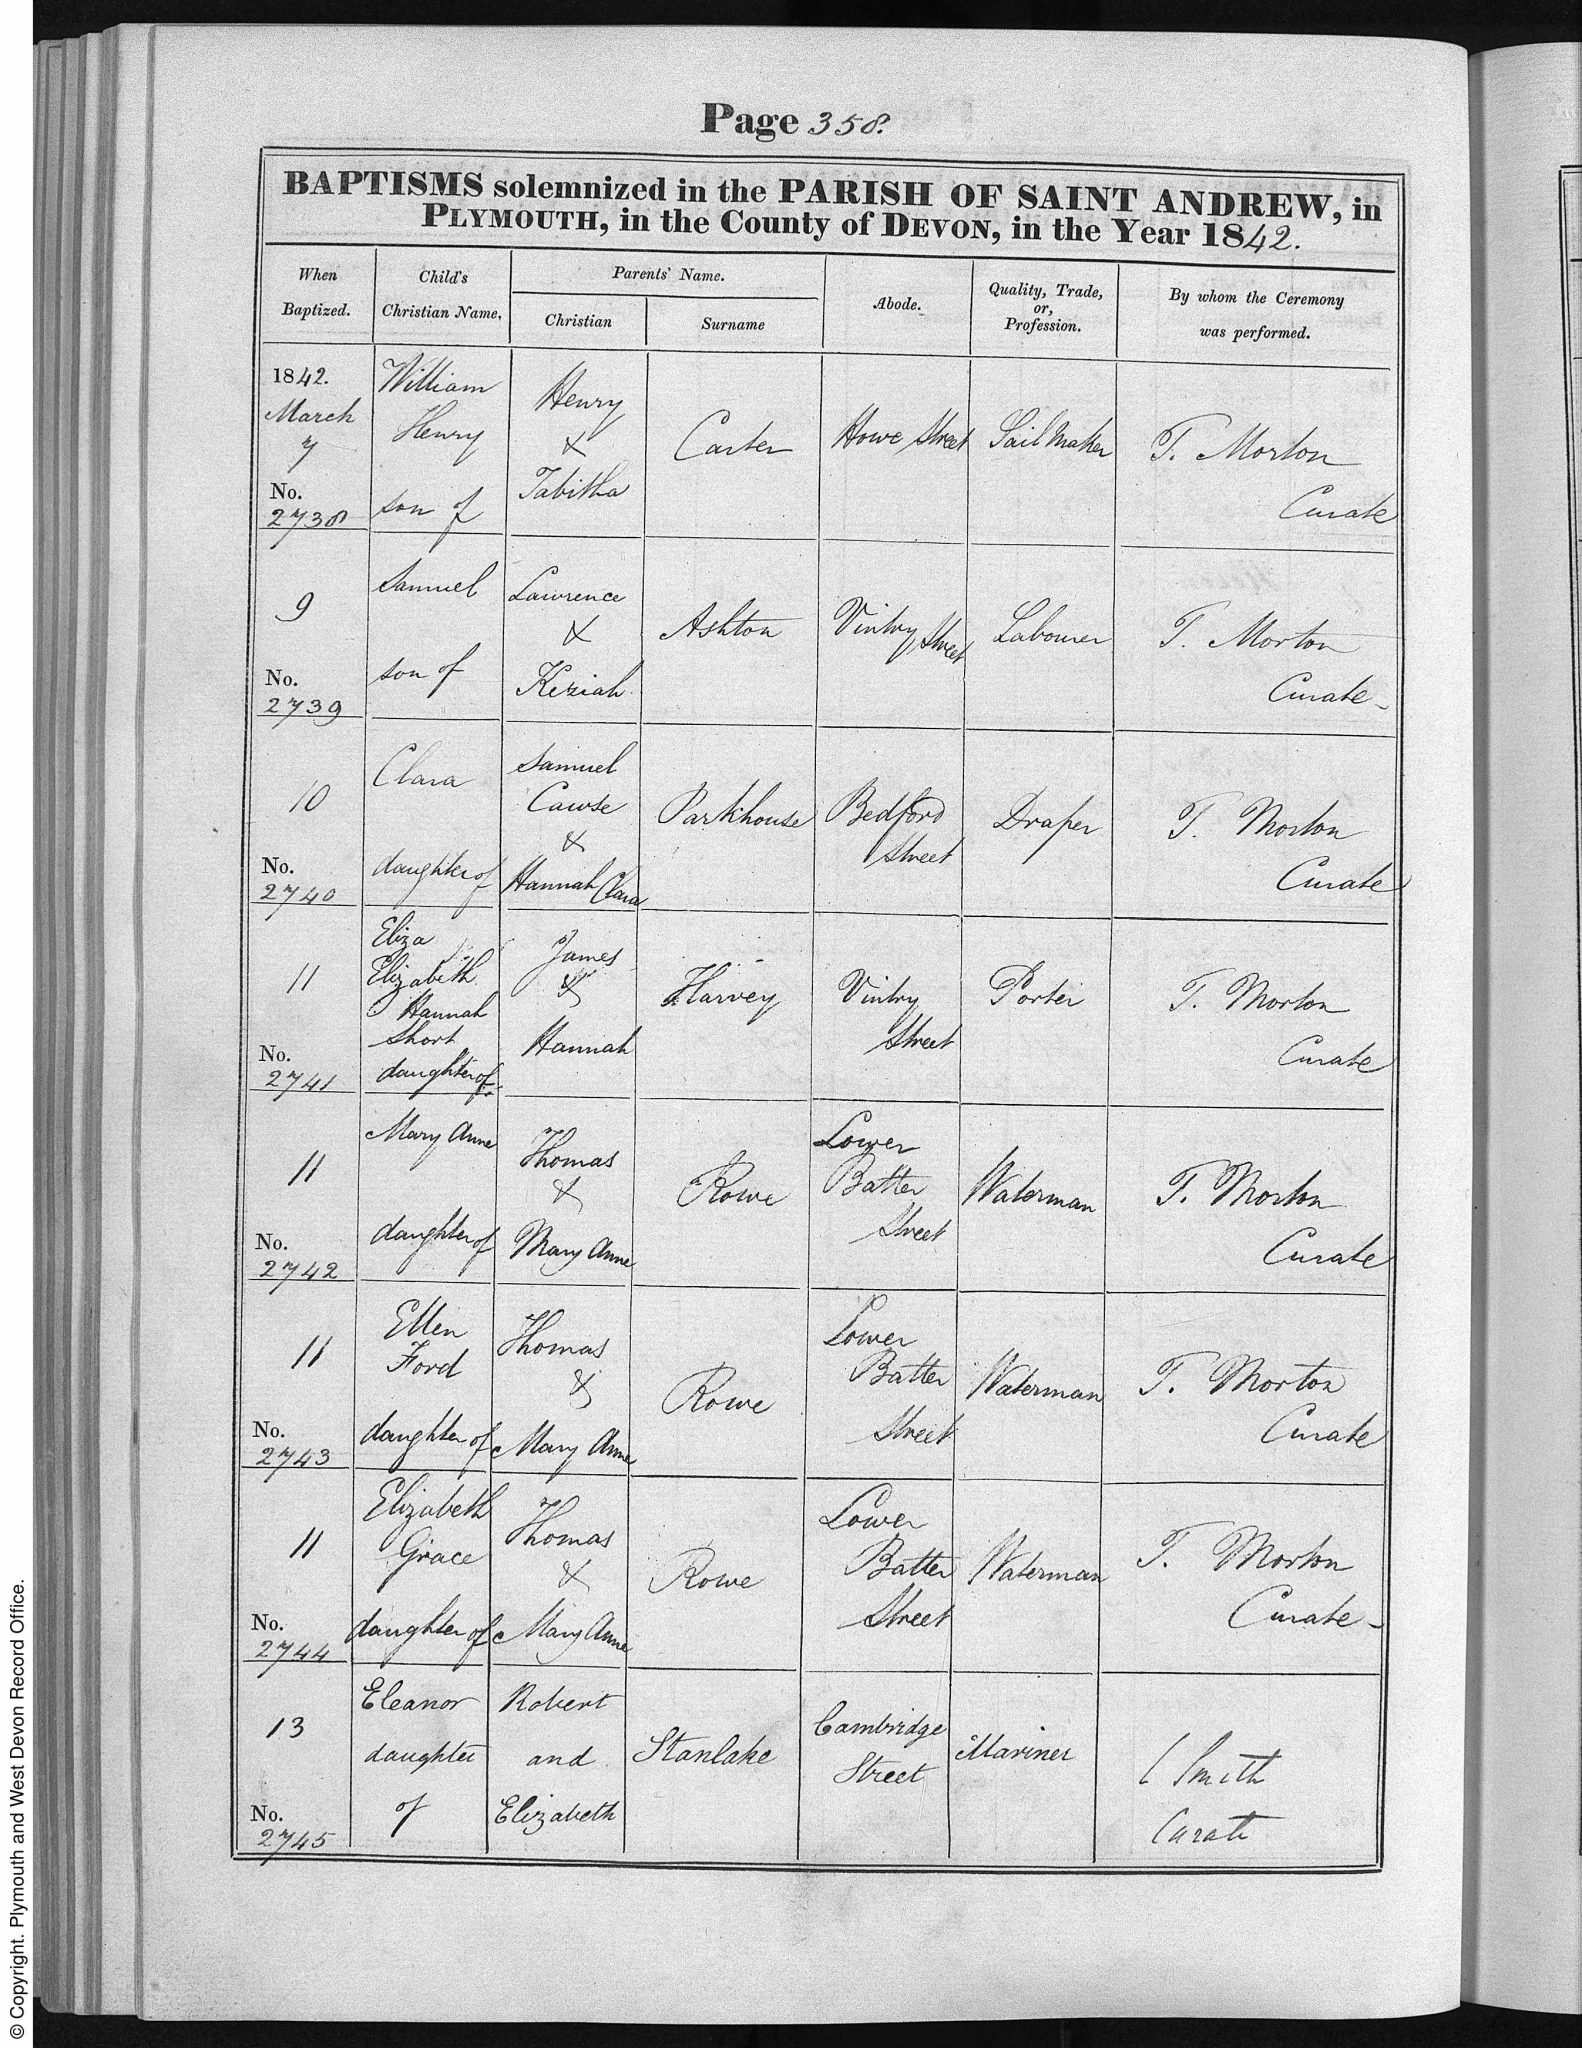 Page 358.
BAPTISMS solemnized in the PARISH OF SAINT ANDREW, in
PLYMOUTH, in the County of DEVON, in the Year 1842.
When Baptized.
Child's Christian Name,
Parents' Name.
Christian
Surname
Abode.
Quality, Trade, or, Profession.
By whom the Ceremony was performed.
1842.
March
7
No.
2738
William
Henry
son of
Henry
&
Tabitha
Carter
Howe Street
Sail Maker
T. Morton
Curate
9
No.
2739
Samuel
son of
Lawrence
&
Keziah
Ashton
Vintry Street
Labourer
T. Morton
Curate
10
No.
2740
Clara
daughter of
Samuel
Cawse
&
Hannah Clara
Parkhouse
Bedford
Street
Draper
T. Morton
Curate
11
No.
2741
Eliza
Elizabeth
Hannah
Short
daughter of
James
&
Hannah
Harvey
Vintry
Street
Porter
T. Morton
Curate
11
No.
2742
Mary Anne
daughter of
Thomas
&
Mary Anne
Rowe
Lower
Batter
Street
Waterman
T. Morton
Curate
11
No.
2743
Ellen
Ford
daughter of
Thomas
&
Mary Anne
Rowe
Lower
Batter
Street
Waterman
T. Morton
Curate
11
No.
2744
Elizabeth
Grace
daughter of
Thomas
&
Mary Anne
Rowe
Lower
Batter
Street
Waterman
T. Morton
Curate
13
No.
2745
Eleanor
daughter
of
Robert
and
Elizabeth
Stanlake
Cambridge
Street
Mariner
C Smith
Curate
© Copyright. Plymouth and West Devon Record Office.